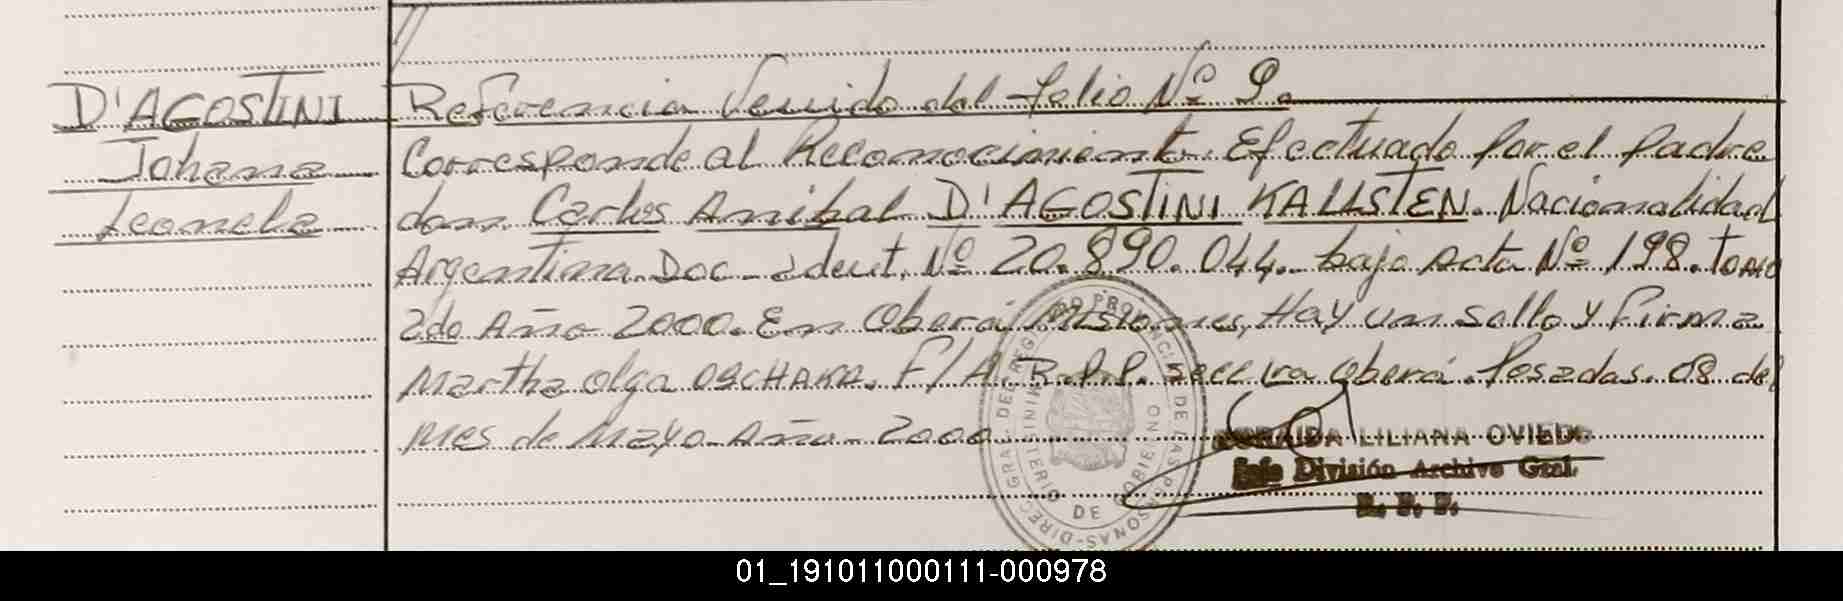 D'AGOSTINI
Johana
Leonela
Referencia Venido del folio Nº 9.
Corresponde al Reconocimiento Efectuado por el padre
don Carlos Anibal D'AGOSTINI KALLSTEN. Nacionalidad
Argentina. Doc- Ident. Nº 20.890.044. bajo Acta Nº 198. TOMO
2do Año 2000. En Oberá Misiones, Hay un sello y firma
Martha Olga F/A. R.P.P. Secc 1ra Oberá. Posadas. 08 del
mes de Mayo Año 2000
DIREC. GRAL. DEL REGISTRO PROVINCIAL DE LAS PERSONAS
MINISTERIO DE GOBIERNO
LILIANA OVIEDO
Jefe División Archivo Gral.
R. P. P.
01_191011000111-000978